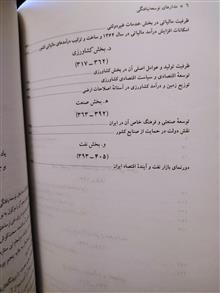 ۶ * مدارهای توسعه‌نیافتگی
ظرفیت مالیاتی در بخش خدمات غیردولتی
امکانات افزایش درآمد مالیاتی در سال ۱۳۷۴ و ساخت و ترکیب درآمدهای مالیاتی کشور
د. بخش کشاورزی
(۳۱۷-۳۶۲)
ظرفیت تولید و عوامل اصلی آن در بخش کشاورزی
توسعهٔ اقتصادی و سیاست اقتصادی کشاورزی
توزیع زمین و درآمد کشاورزی در آستانهٔ اصلاحات ارضی
ه. بخش صنعت
(۳۶۳-۳۹۲)
توسعهٔ صنعتی و فرهنگ خاص آن در ایران
نقش دولت در حمایت از صنایع کشور
و. بخش نفت
(۳۹۳-۴۰۵)
دورنمای بازار نفت و آیندهٔ اقتصاد ایران